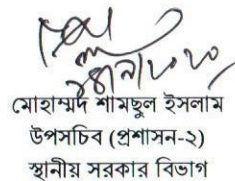 মোহাম্মদ শামছুল ইসলাম
উপসচিব (প্রশাসন-২)
স্থানীয় সরকার বিভাগ